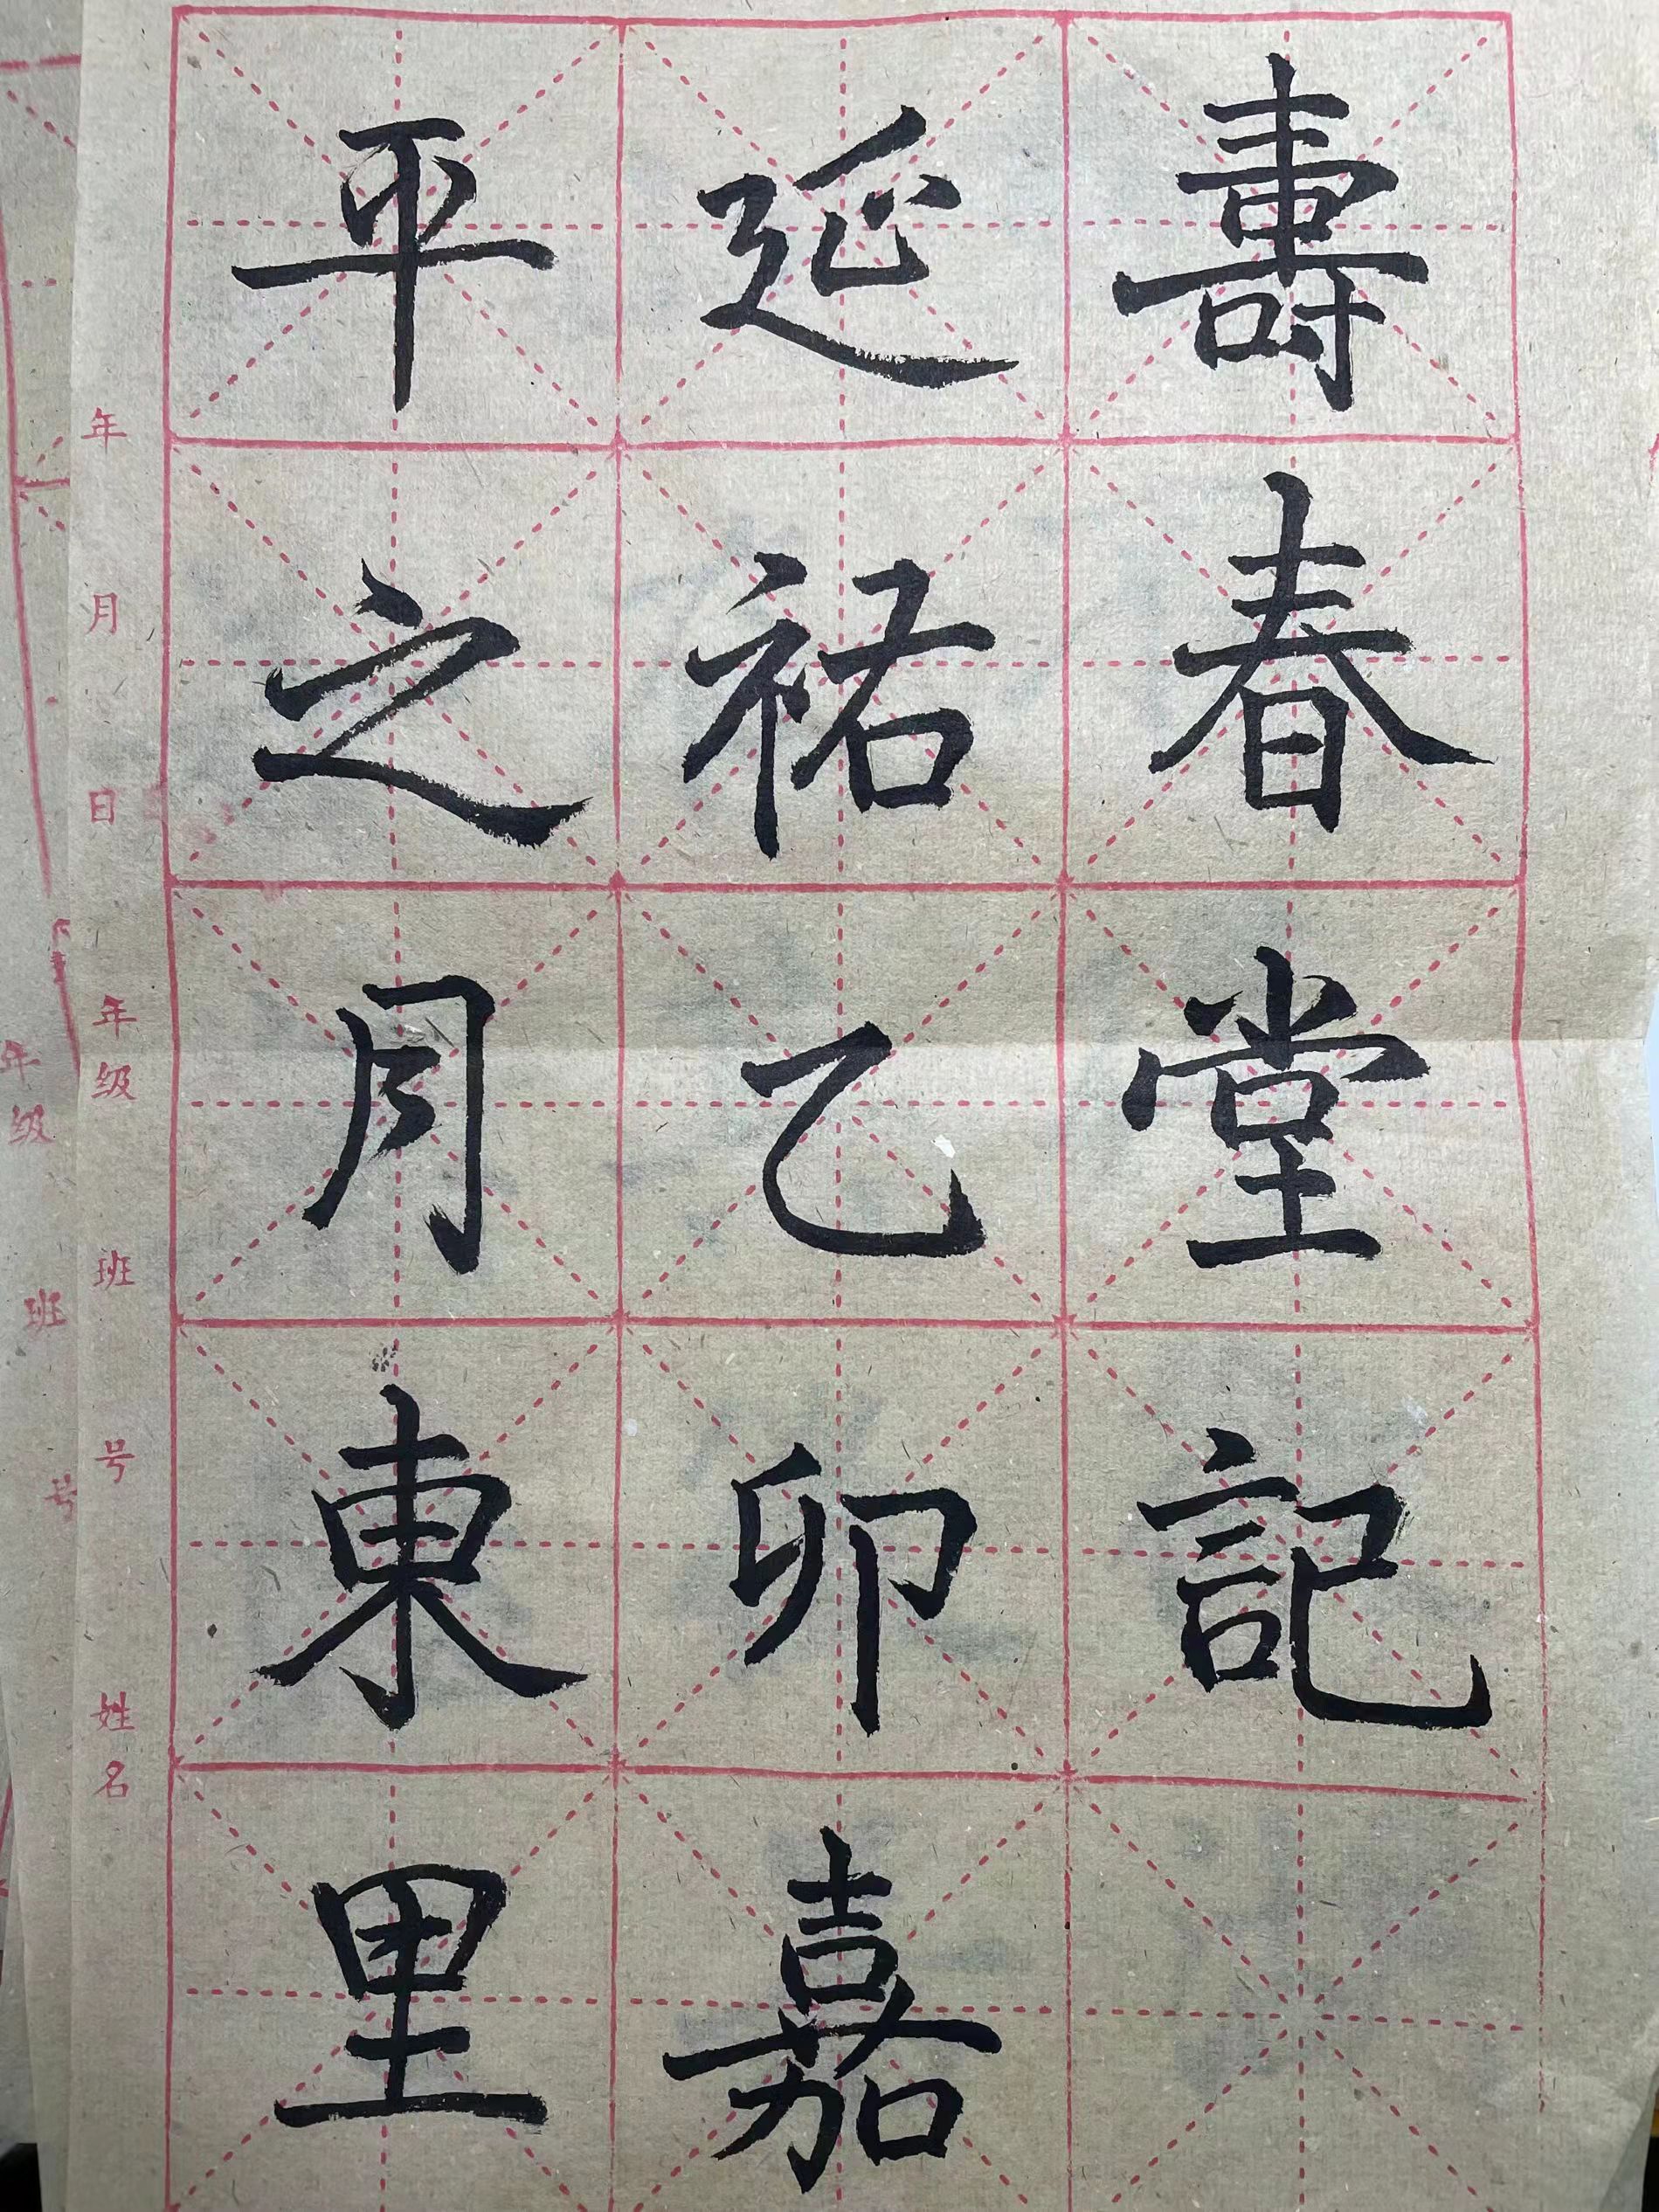 壽春堂記
延祐乙卯嘉
平之月東里
年 月 日 年级 班 号 姓名
年级 班 号